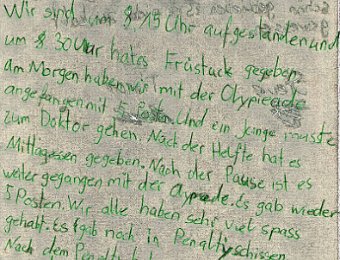 Wir sind um 8.15 Uhr aufgestanden und
um 8.30 Uhr hat es Früstück gegeben,
am Morgen haben wir mit der Olypieade
angefangen mit 5 Posten. Und ein Junge musste
zum Doktor gehen. Nach der Helfte hat es
Mittagessen gegeben. Nach der Pause ist es
weiter gegangen mit der Olypiade. Es gab wieder
5 Posten. Wir alle haben sehr viel spass
gehabt. Es gab noch in Penaltyschissen
Nach dem